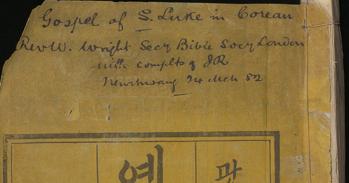 Gospel of S. Luke in Corean
Rev W. Wright Secy Bible Socy London
with complts of JR
Newchwang 24 Mch 82
예